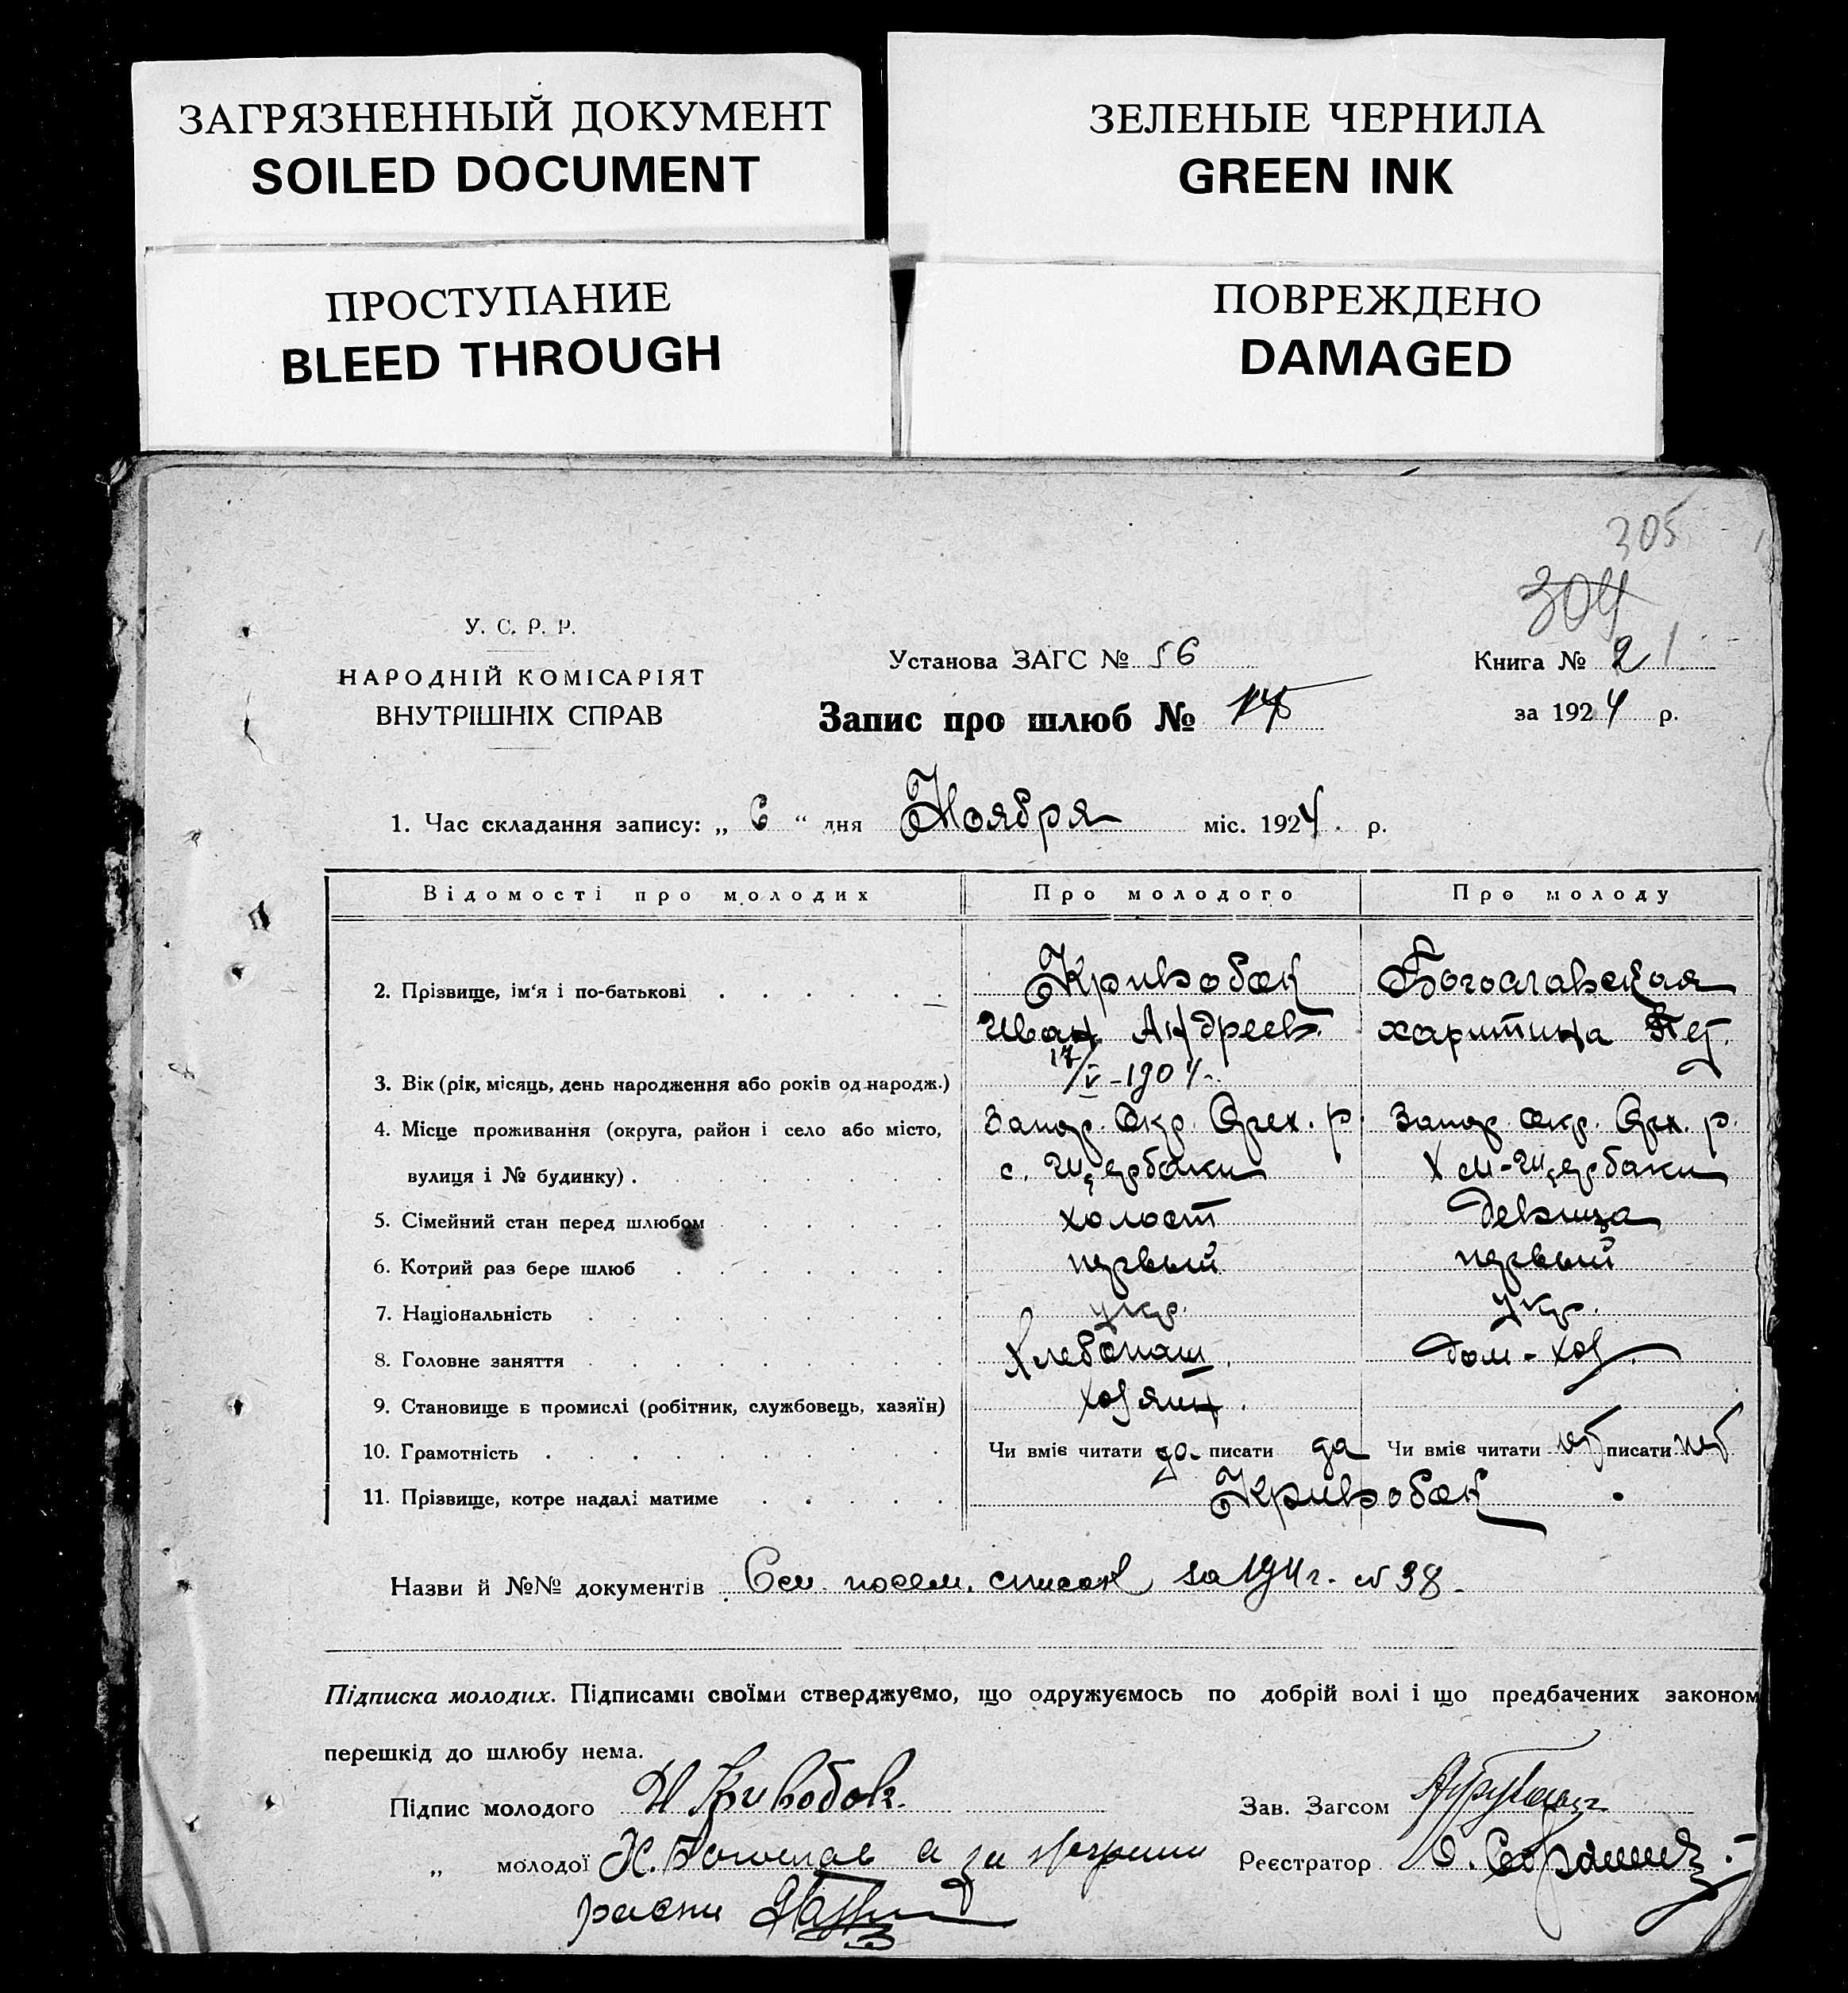 ЗАГРЯЗНЕННЫЙ ДОКУМЕНТ
SOILED DOCUMENT
ЗЕЛЕНЫЕ ЧЕРНИЛА
GREEN INK
ПРОСТУПАНИЕ
BLEED THROUGH
ПОВРЕЖДЕНО
DAMAGED
305
304
У. С. Р. Р.
НАРОДНІЙ КОМІСАРІЯТ
ВНУТРІШНІХ СПРАВ
Установа ЗАГС № 56
Запис про шлюб №
Книга № 2
за 1924 р.
1. Час складання запису: „ 6 “ дня Ноября міс. 1924. р.
Відомості про молодих Про молодого Про молоду
2. Прізвище, ім'я і по-батькові Кривобок Богославская
Иван Андреев. харитина Пет.
3. Вік (рік, місяць, день народження або років од народж.) 17/V-1904.
4. Місце проживання (округа, район і село або місто, Запор. Окр. Орех. р. Запор. окр. Орх. р.
вулиця і № будинку). с. Щербаки Х М-Щербаки
5. Сімейний стан перед шлюбом холост девица
6. Котрий раз бере шлюб первый первый
7. Національність укр. укр.
8. Головне заняття Хлебопаш. дом-хоз.
9. Становище в промислі (робітник, службовець, хазяїн) хозяин.
10. Грамотність Чи вміє читати да писати да Чи вміє читати нет писати нет
11. Прізвище, котре надалі матиме Кривобок
Назви й №№ документів посем. список за г. № 38.
Підписка молодих. Підписами своїми стверджуємо, що одружуємось по добрій волі і що предбачених законом
перешкід до шлюбу нема.
Підпис молодого И Кривобок. Зав. Загсом
„ молодої Х. Богослав а за Реєстратор